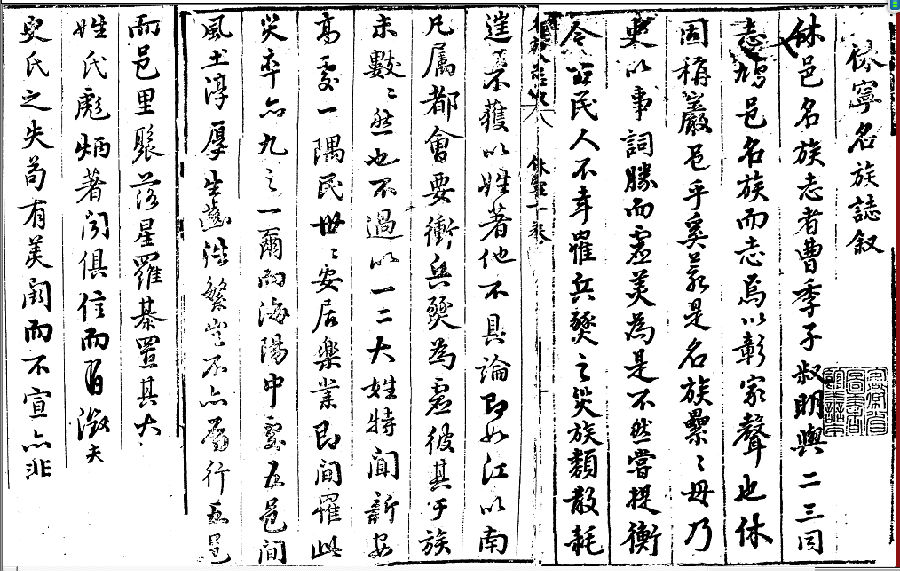 休寧名族誌叙
休邑名族志者曹季子叔明與二三同
志搞邑名族而志焉以彰家聲也休
固稱巖邑乎奚若是名族纍〻毋乃
史以事詞勝而虛美為是不然嘗提衡
今古民人不幸罹兵燹之災族類散耗
遂不獲以姓著他不具論即如江以南
凡属都會要衝兵燹為虛彼其于族
未數〻然也不過以一二大姓特聞新安
高處一隅民世〻安居樂業即間罹此
災率亦九之一爾而海陽中處五邑間
風土淳厚生齒浩繁豈不亦
而邑里聚落星羅棊置其大
姓氏彪炳著闻俱信而有徵夫
史氏之失苟有美闕而不宣亦非